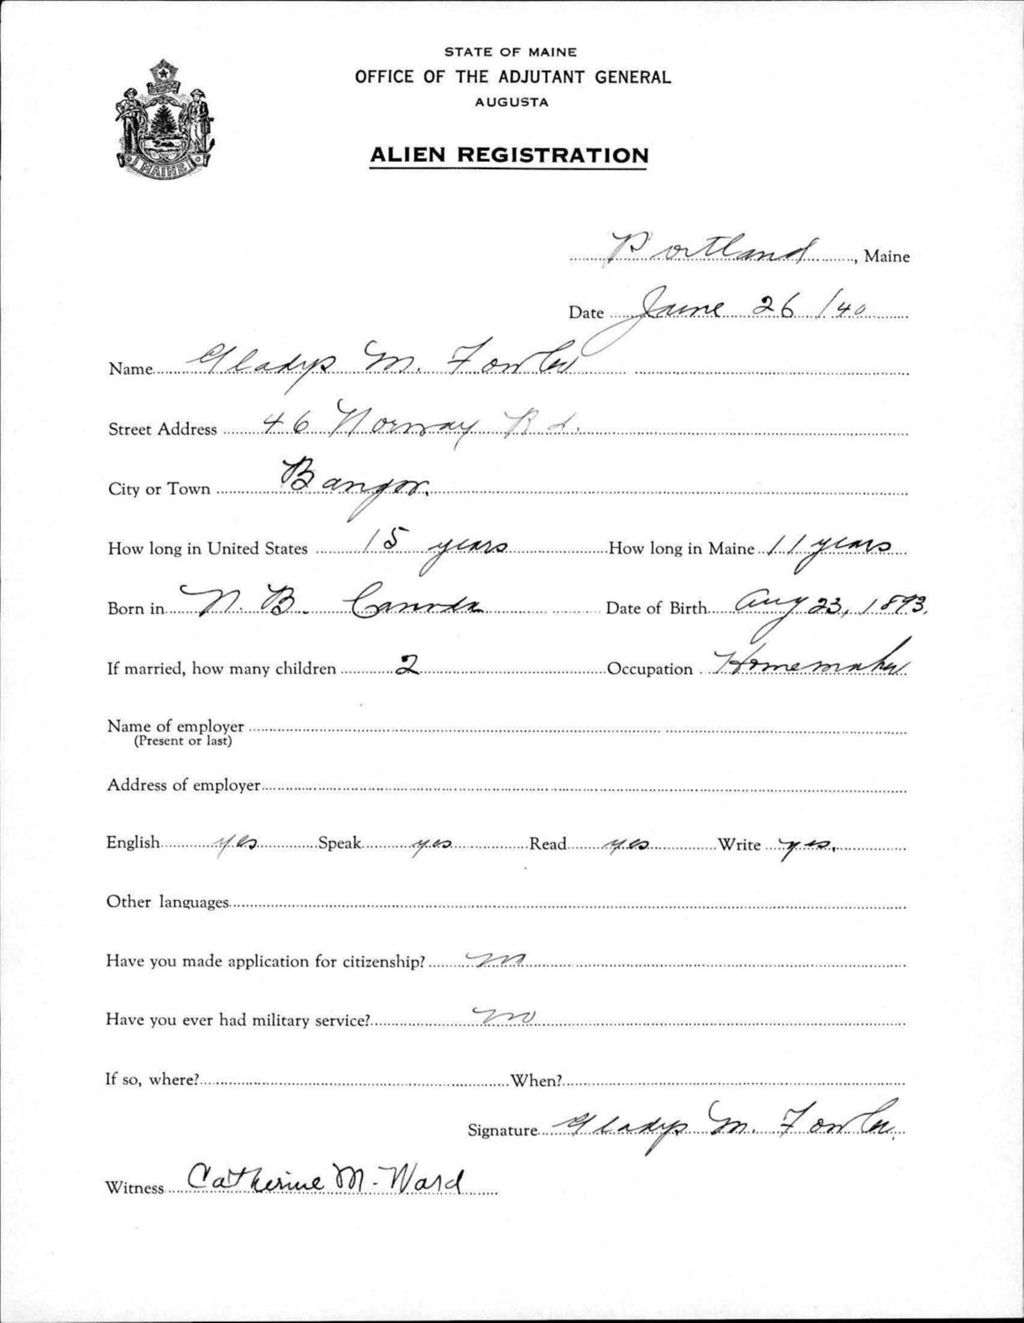 STATE OF MAINE
OFFICE OF THE ADJUTANT GENERAL
AUGUSTA
ALIEN REGISTRATION
MAINE
Portland, Maine
Date June 26/40
Name Gladys M. Fowler
Street Address 46 Norway Rd.
City or Town Bangor.
How long in United States 15 years How long in Maine 11 years
Born in N. B. Canada Date of Birth Aug 23, 1893.
If married, how many children 2 Occupation Homemaker
Name of employer
(Present or last)
Address of employer
English yes Speak yes Read yes Write yes.
Other languages
Have you made application for citizenship? no
Have you ever had military service? no
If so, where? When?
Signature Gladys M. Fowler
Witness Catherine M. Ward